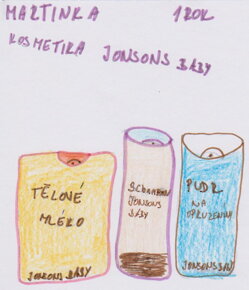 MARTINKA 1 ROK
KOSMETIKA JONSONS BABY
TĚLOVÉ
MLÉKO
JONSONS BABY
JONSONS
BABY
PUDR
NA
OPRUZENINY
JONSONS BABY